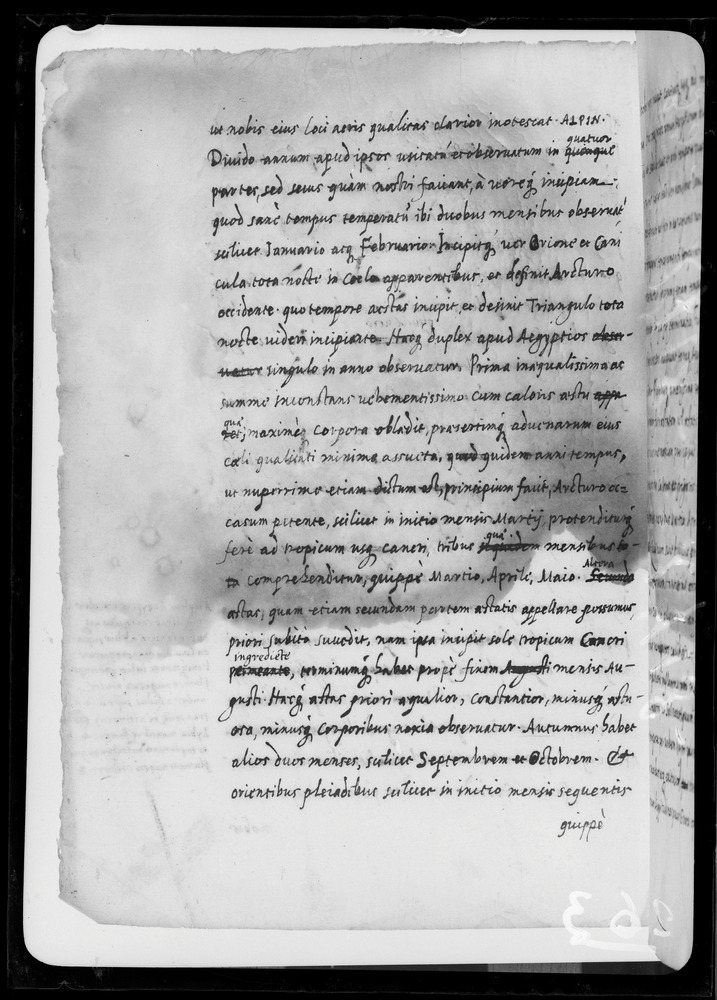 ut nobis eius loci aeris qualitas clarior inotescat. ALPIN.
quatuor
Diuido annum apud ipsos usitatū et obseruatum in quinque
partes, sed secus quàm nostri faciant, à uereq́; incipiam.
quod sanè tempus temperatū ibi duobus mensibus obseruat'
scilicet Ianuario atq́; Februario. Incipitq́; uer Orione et Cani
cula tota nocte in Coelo apparentibus, et desinit Arcturo
occidente. quo tempore aestas incipit, et desinit Triangulo tota
nocte uideri incipiante. Haecq́; duplex apud Aegyptios obser-
uatur singulo in anno obseruatur. Prima inaqualissima ac
summè inconstans uehementissimo cum caloris aestu
quae
maximèq́; corpora obladit, praesertimq́; aduenarum eius
coeli qualitati minimè assueta, quod quidem anni tempus,
ut nuperrimè etiam dictum est, principium facit, Arcturo oc=
casum petente, scilicet in initio mensis Martij, protenditurq́;
quae
ferè ad tropicum usq́; cancri, tribus mensibus to-
Altera
ta comprehenditur, quippè Martio, Aprile, Maio. Secunda
aestas, quam etiam secundam partem aestatis appellare possumus,
priori subitò succedit, nam ipsa incipit sole tropicum Cancri
ingrediēte
, terminumq́; habet propè finem Augusti mensis Au-
gusti. Haecq́; aestas priori aqualior, constantior, minusq́; aestu-
osa, minusq́; corporibus noxia obseruatur. Autumnus habet
alios duos menses, scilicet Septembrem et Octobrem. Et
orientibus pleiadibus scilicet in initio mensis sequentis
quippè
263